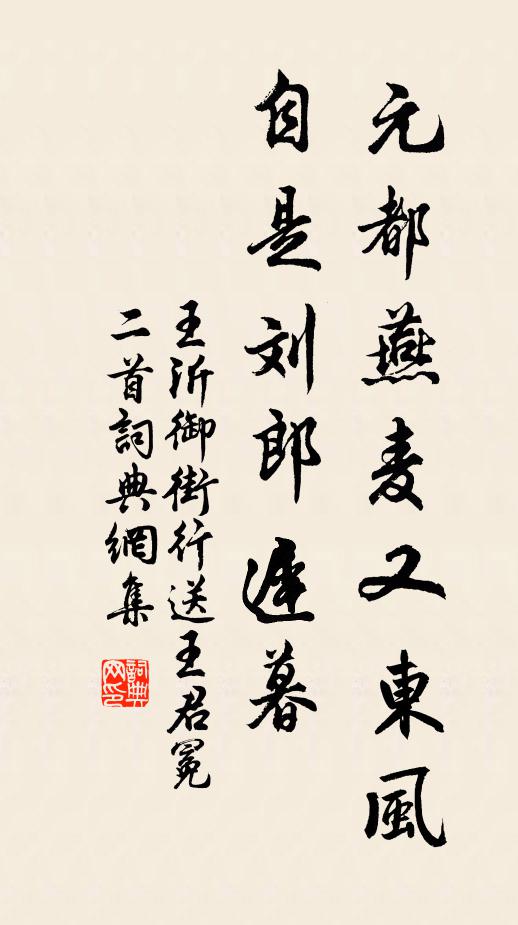 元都燕麦又東風
自是刘郎遅暮
王沂御街行送王君冕
二首詞典網集
詞典网印